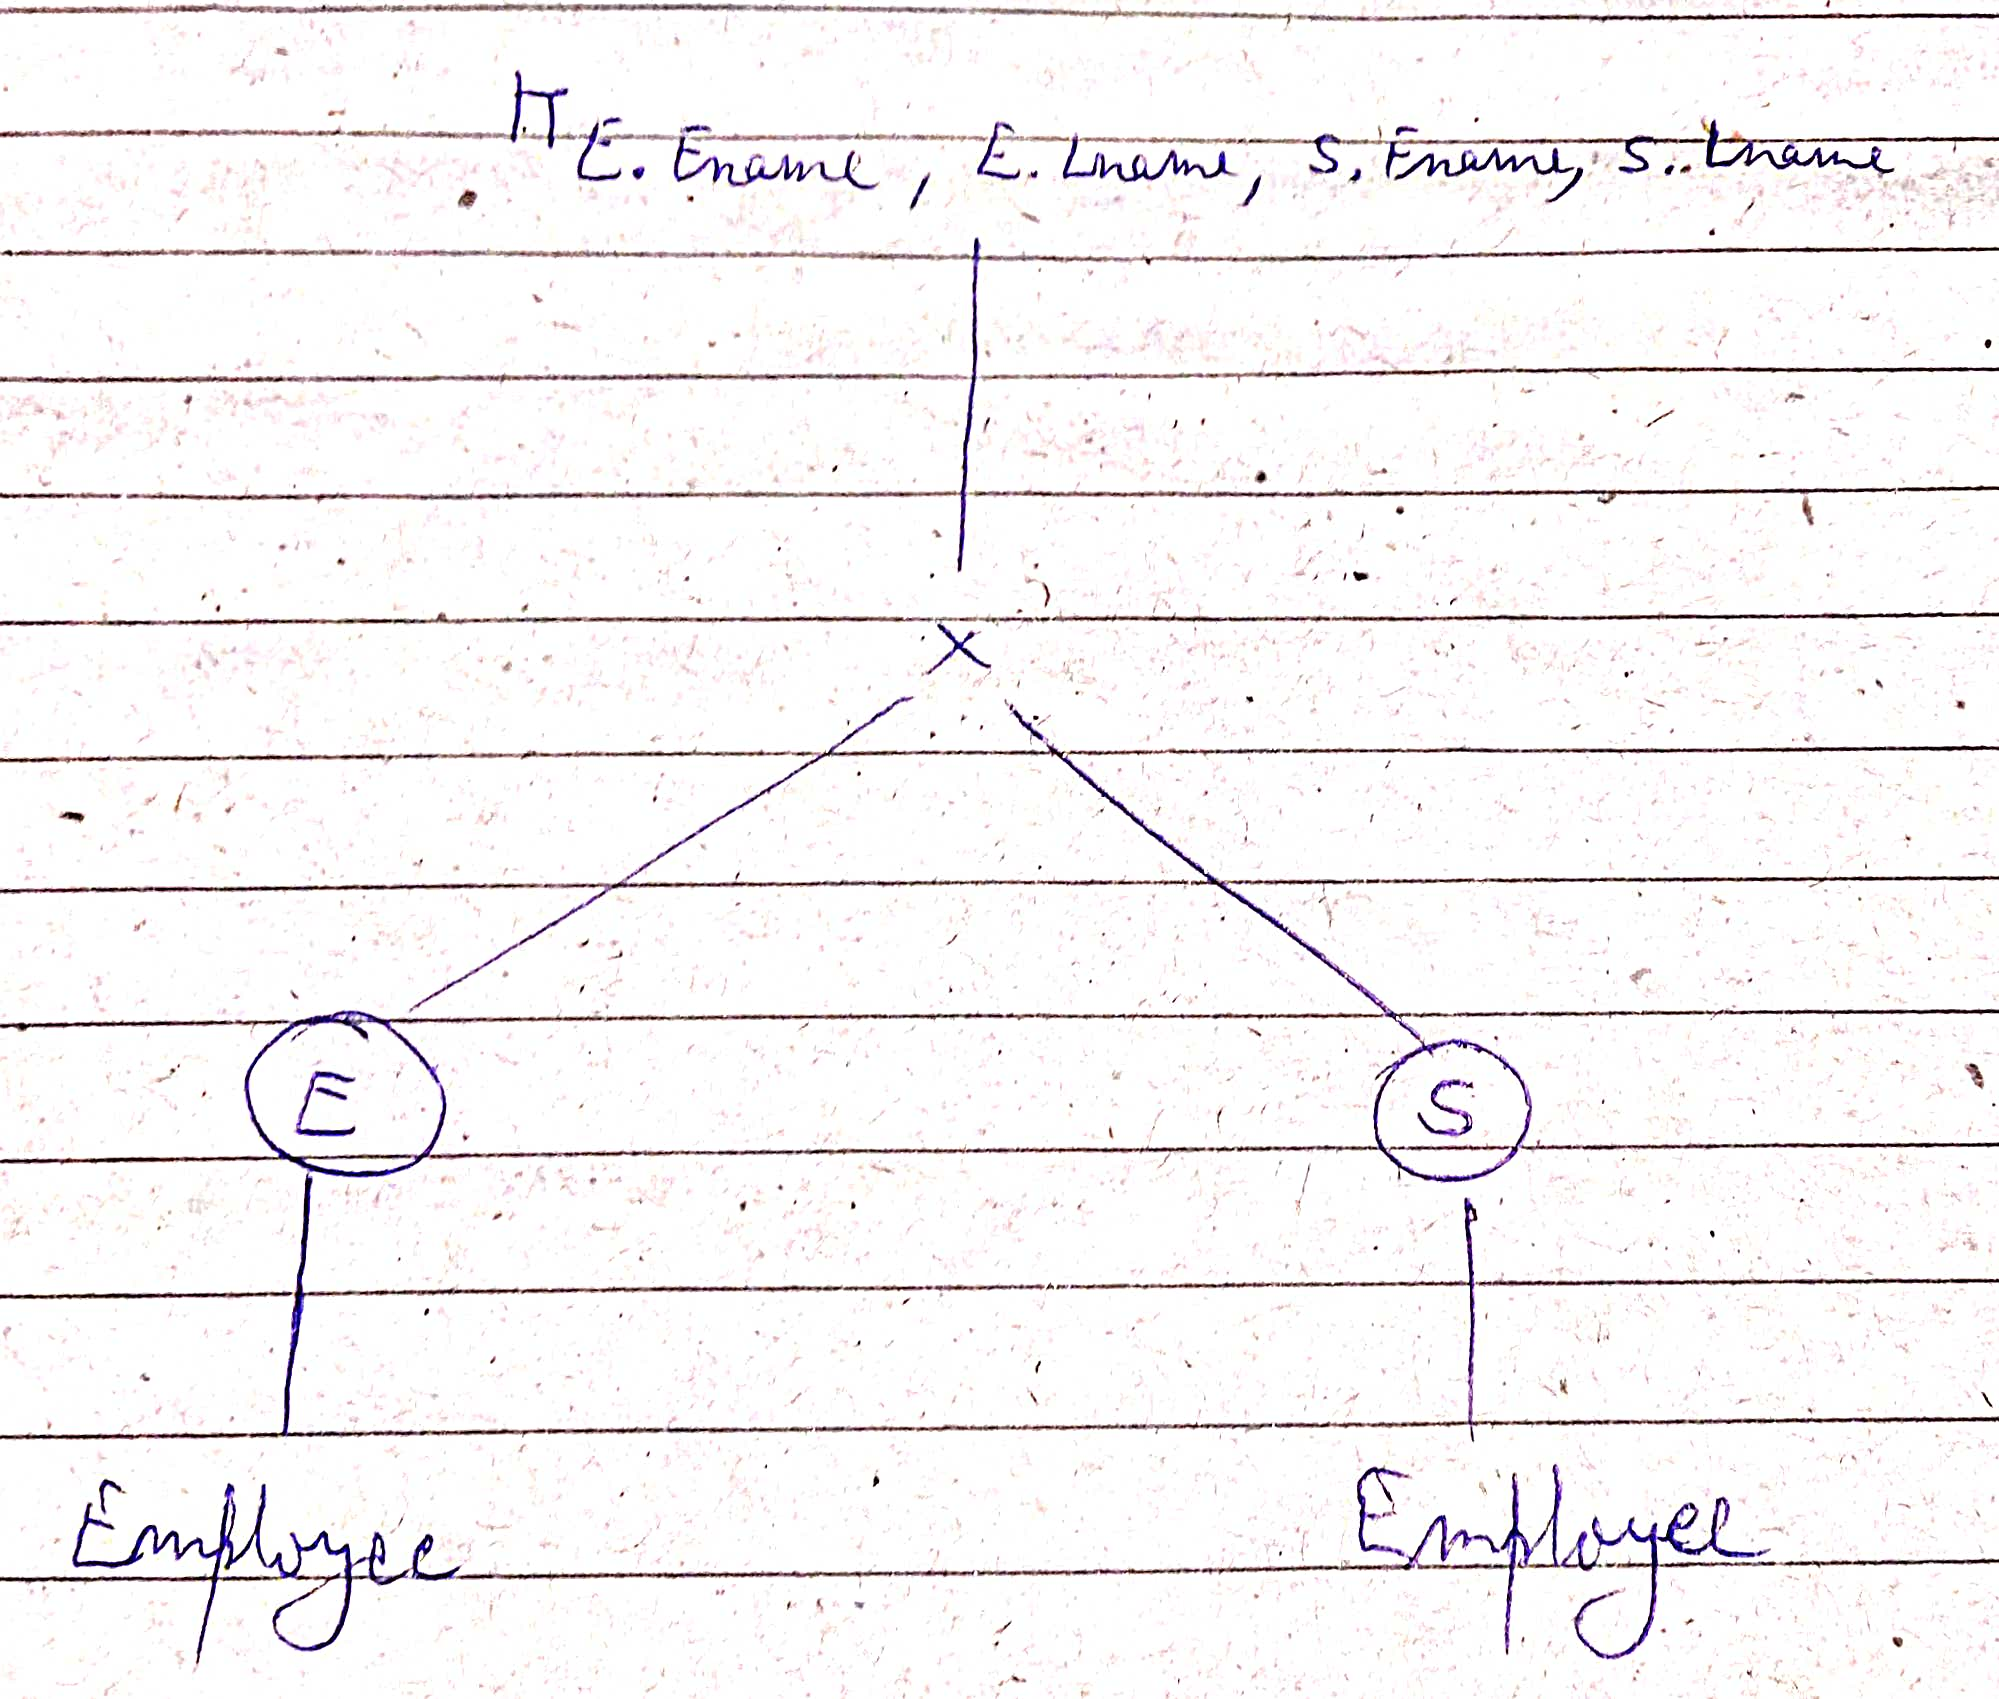 π E. Ename, E. Lname, S. Fname, S. Lname
×
E S
Employee Employee